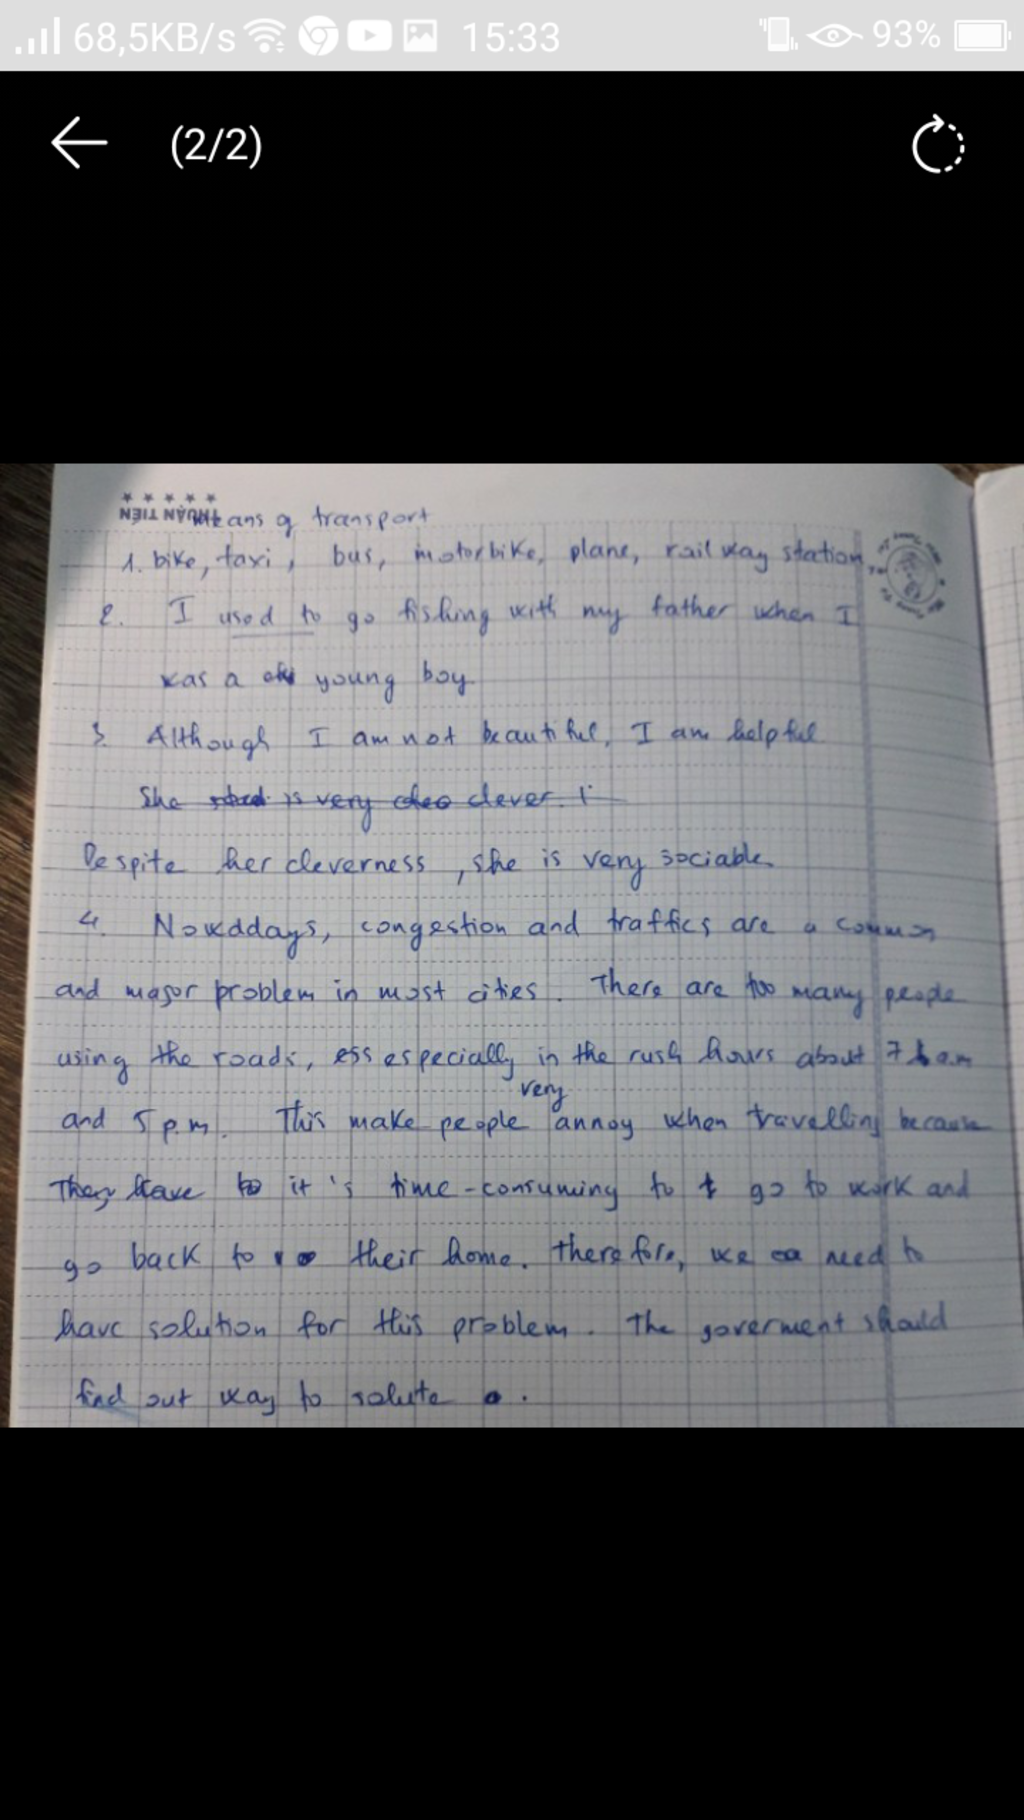 68,5KB/s 15:33 93%
(2/2)
★★★★★
THUẬN TIẾN
Means of transport
1. bike, taxi, bus, motorbike, plane, railway station
2. I used to go fishing with my father when I
was a young boy
3. Although I am not beautiful, I am helpful
She is very clever.
Despite her cleverness, she is very sociable
4. Nowddays, congestion and traffics are a common
and major problem in most cities. There are too many people
using the roads, ess especially in the rush hours about 7 a.m
very
and 5 p.m. This make people annoy when travelling because
They have to it's time-consuming to t go to work and
go back to their home. therefore, we ca need to
have solution for this problem. The goverment should
find out way to solute